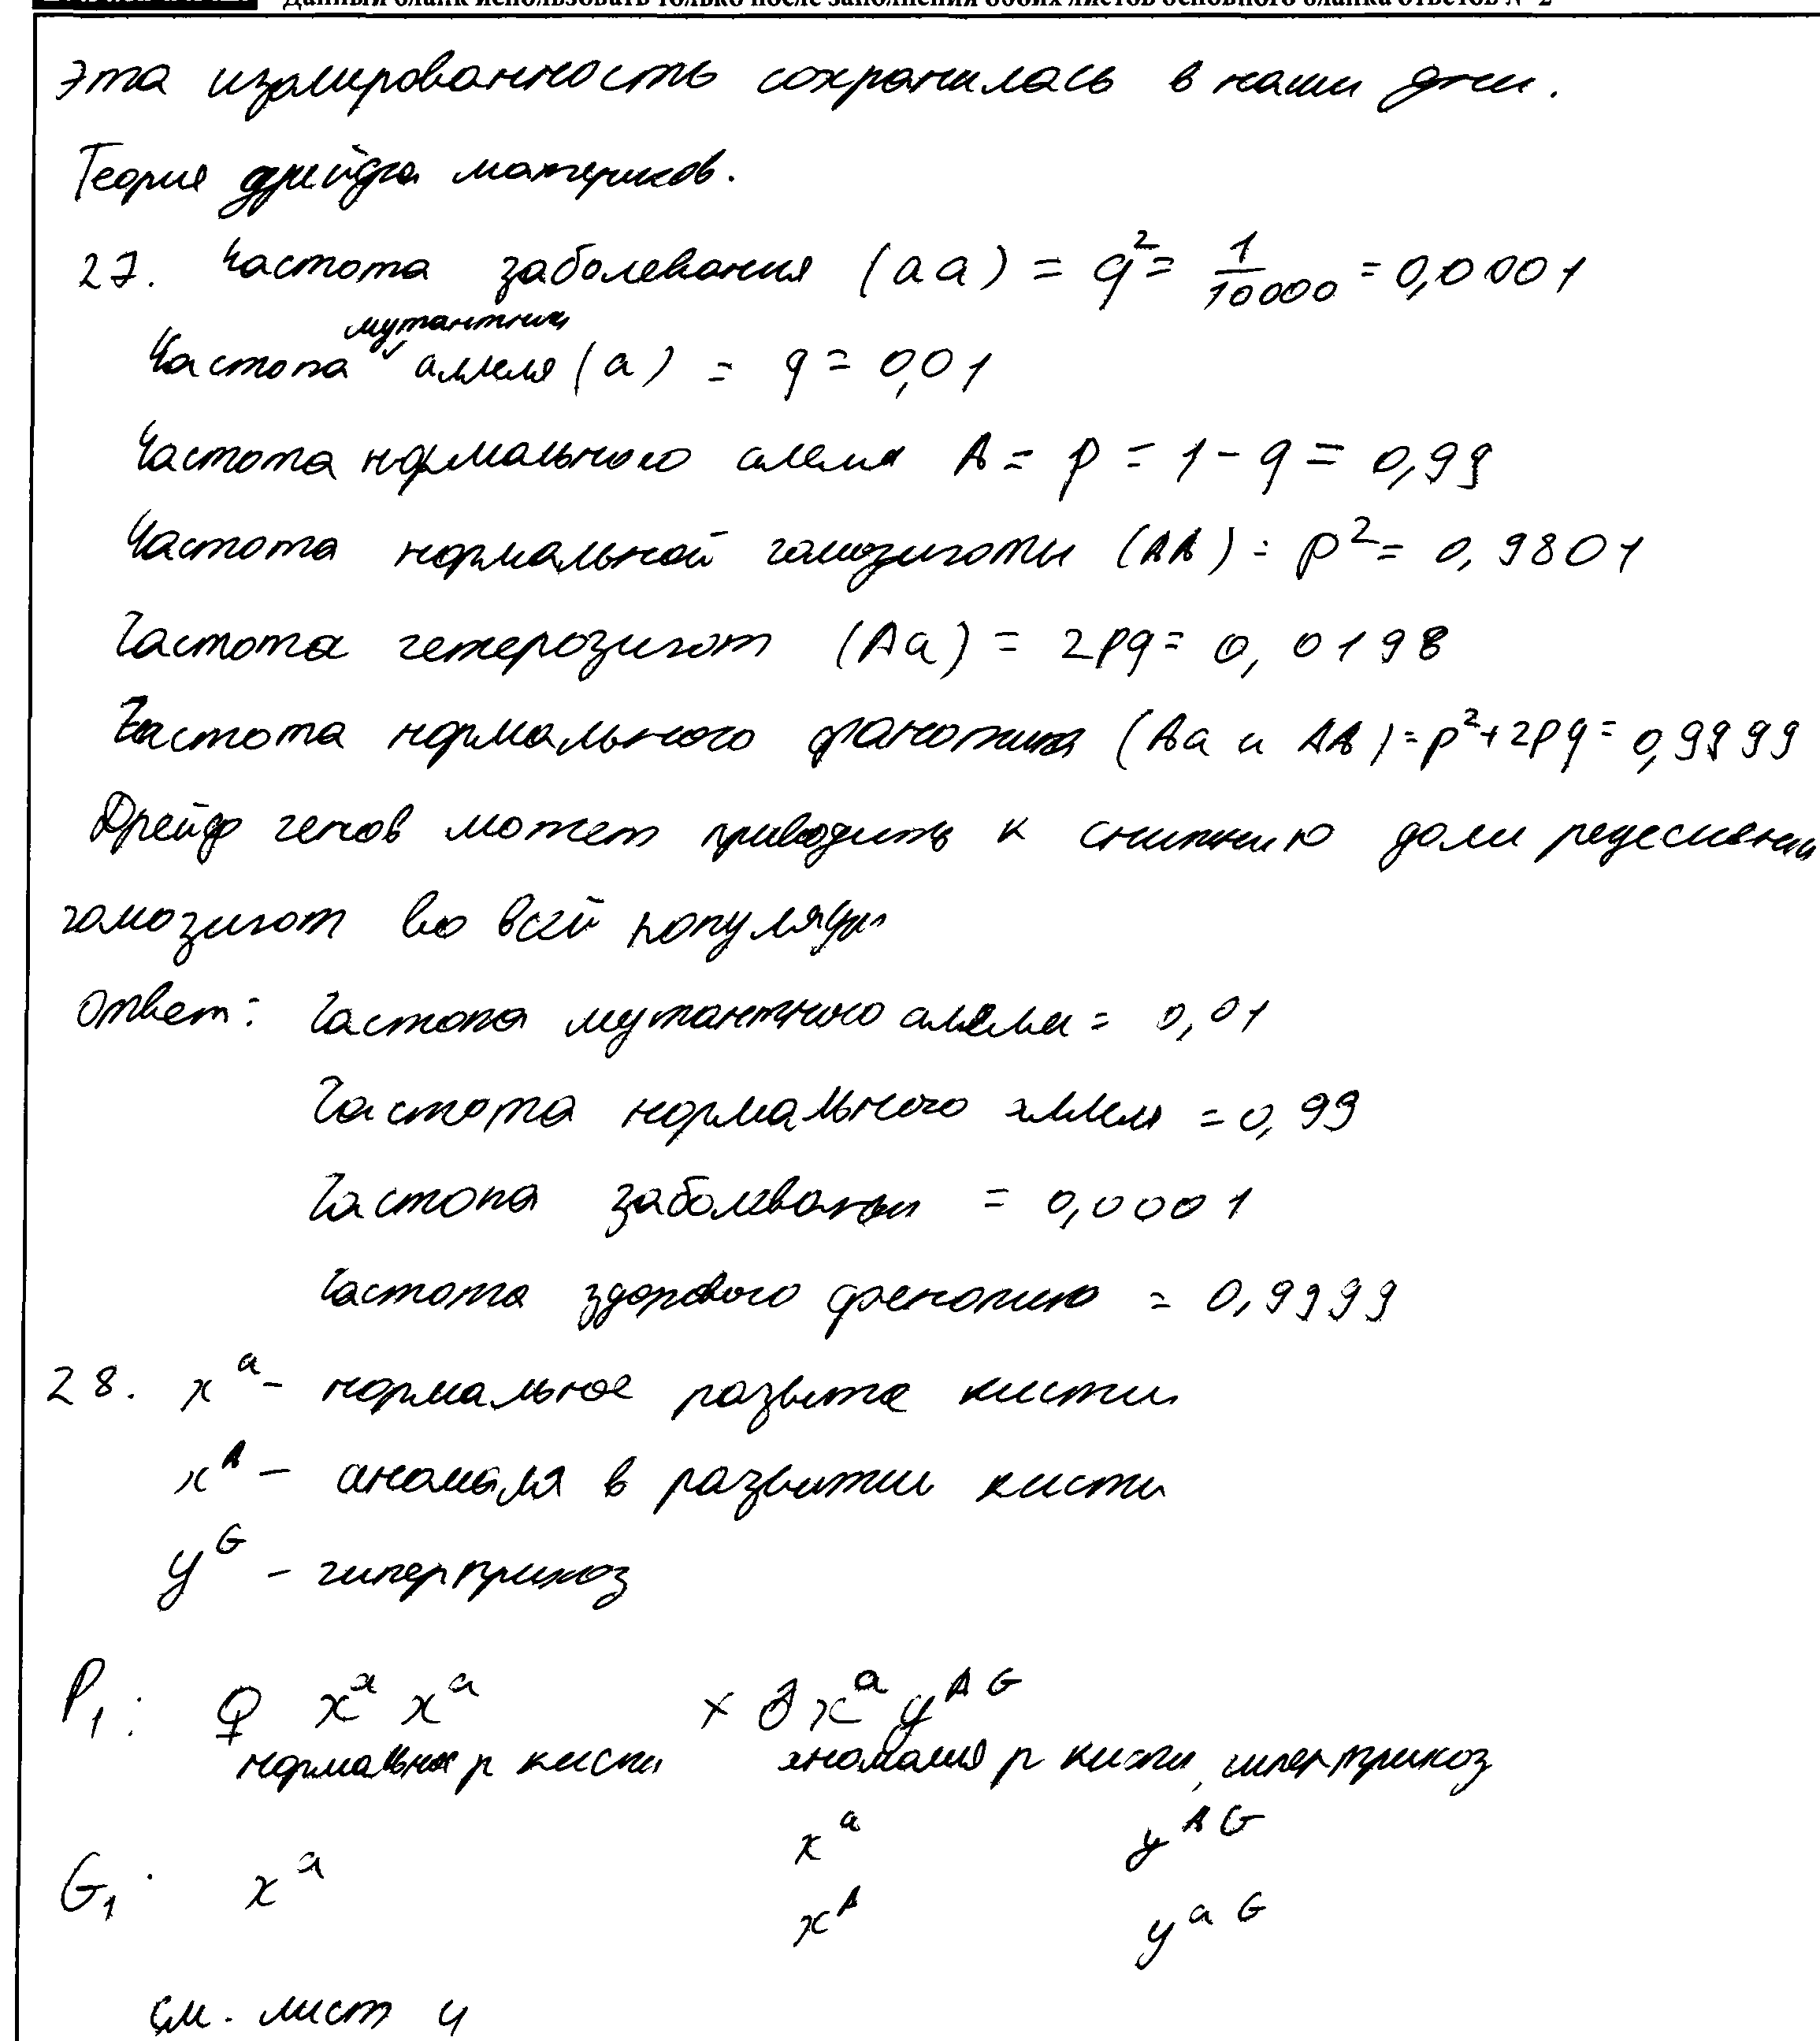 Данный бланк использовать только после заполнения обоих листов основного бланка ответов № 2
Эта изолированность сохранилась в наши дни.
Теория дрейфа материков.
27. Частота заболевания (аа) = q² = 1/10000 = 0,0001
мутантным
Частота ✓ аллеля (а) = q = 0,01
Частота нормального аллеля А = p = 1 - q = 0,99
Частота нормальной гомозиготы (АА) = p² = 0,9801
Частота гетерозигот (Аа) = 2pq = 0,0198
Частота нормального фенотипа (Аа и АА) = p² + 2pq = 0,9999
Дрейф генов может приводить к снижению доли рецессивных
гомозигот во всей популяции
Ответ: Частота мутантного аллеля = 0,01
Частота нормального аллеля = 0,99
Частота заболевания = 0,0001
Частота здорового фенотипа = 0,9999
28. xᵃ - нормальное развитие кисти
xᴬ - аномалия в развитии кисти
yᴳ - гипертрихоз
P₁: ♀ xᵃ xᵃ × ♂ xᵃ yᴬᴳ
нормальное р кисти аномалия р кисти, гипертрихоз
xᵃ yᴬᴳ
G₁: xᵃ
xᴬ yᵃᴳ
см. лист 4